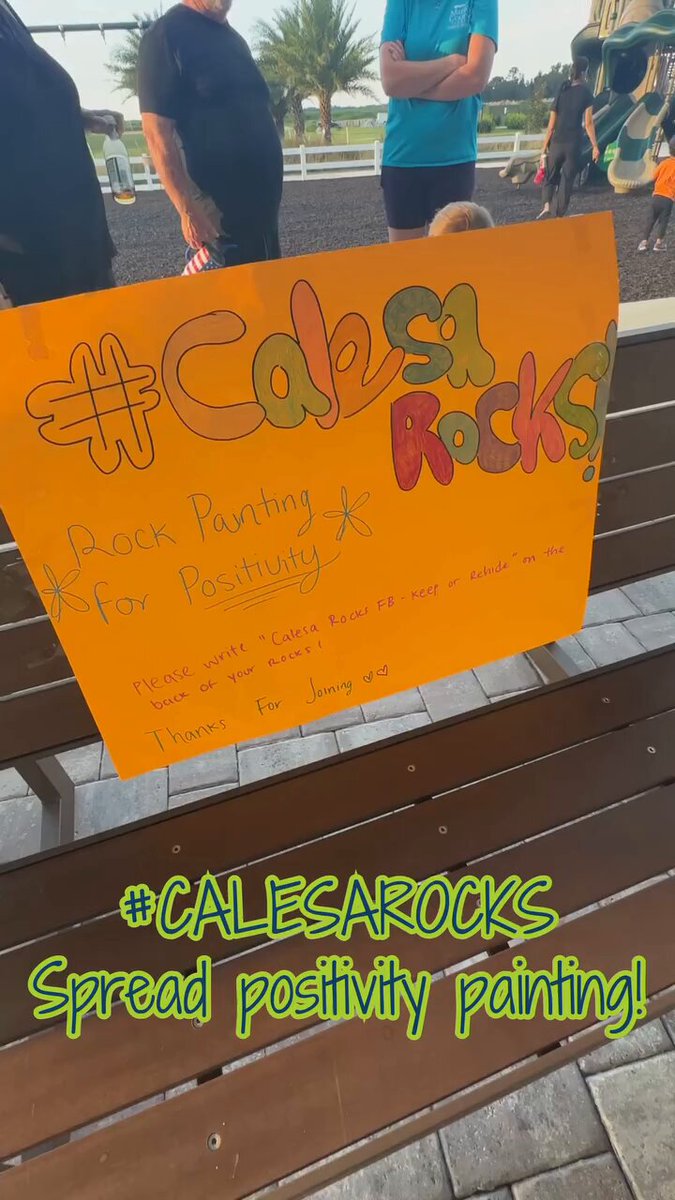 #Calesa
Rocks!
Rock Painting
for Positivity
Please write "Calesa Rocks FB - Keep or Rehide" on the
back of your rocks!
Thanks For Joining
#CALESAROCKS
Spread positivity painting!